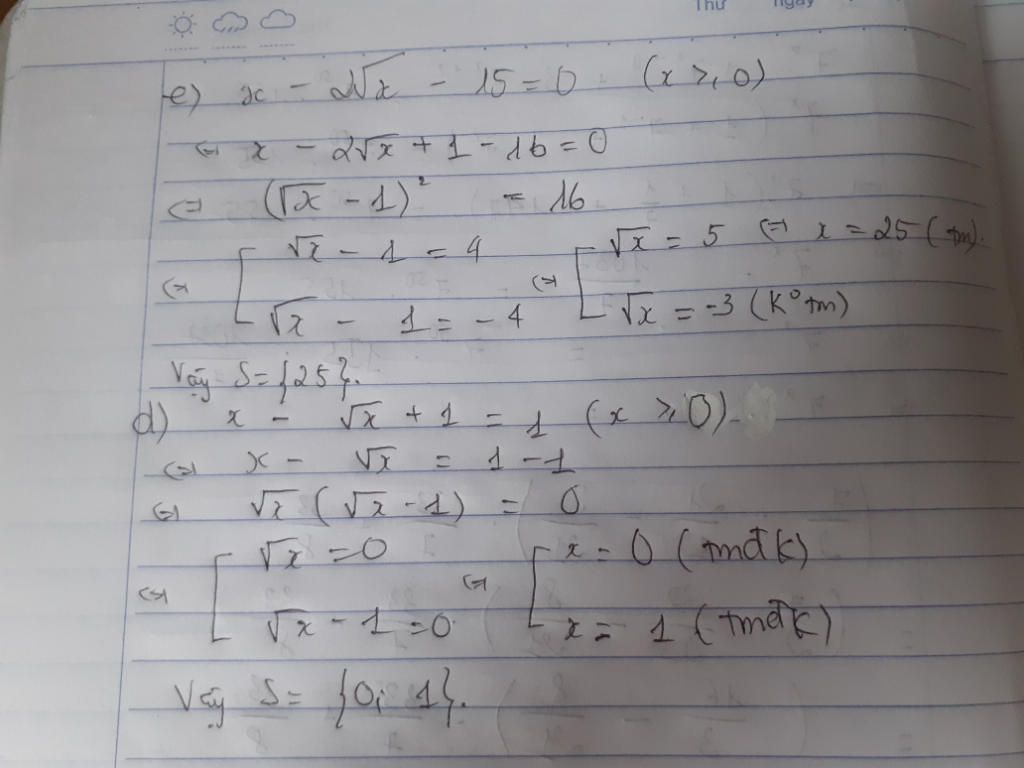 Thứ ngày
e) x - 2√x - 15 = 0 (x ≥ 0)
⇔ x - 2√x + 1 - 16 = 0
⇔ (√x - 1)² = 16
⇔ [ √x - 1 = 4 ⇔ [ √x = 5 ⇔ x = 25 (tm).
√x - 1 = -4 √x = -3 (K° tm)
Vậy S = {25}.
d) x - √x + 1 = 1 (x ≥ 0)
⇔ x - √x = 1 - 1
⇔ √x (√x - 1) = 0
⇔ [ √x = 0 ⇔ [ x = 0 (tmđk)
√x - 1 = 0 x = 1 (tmđk)
Vậy S = {0; 1}.